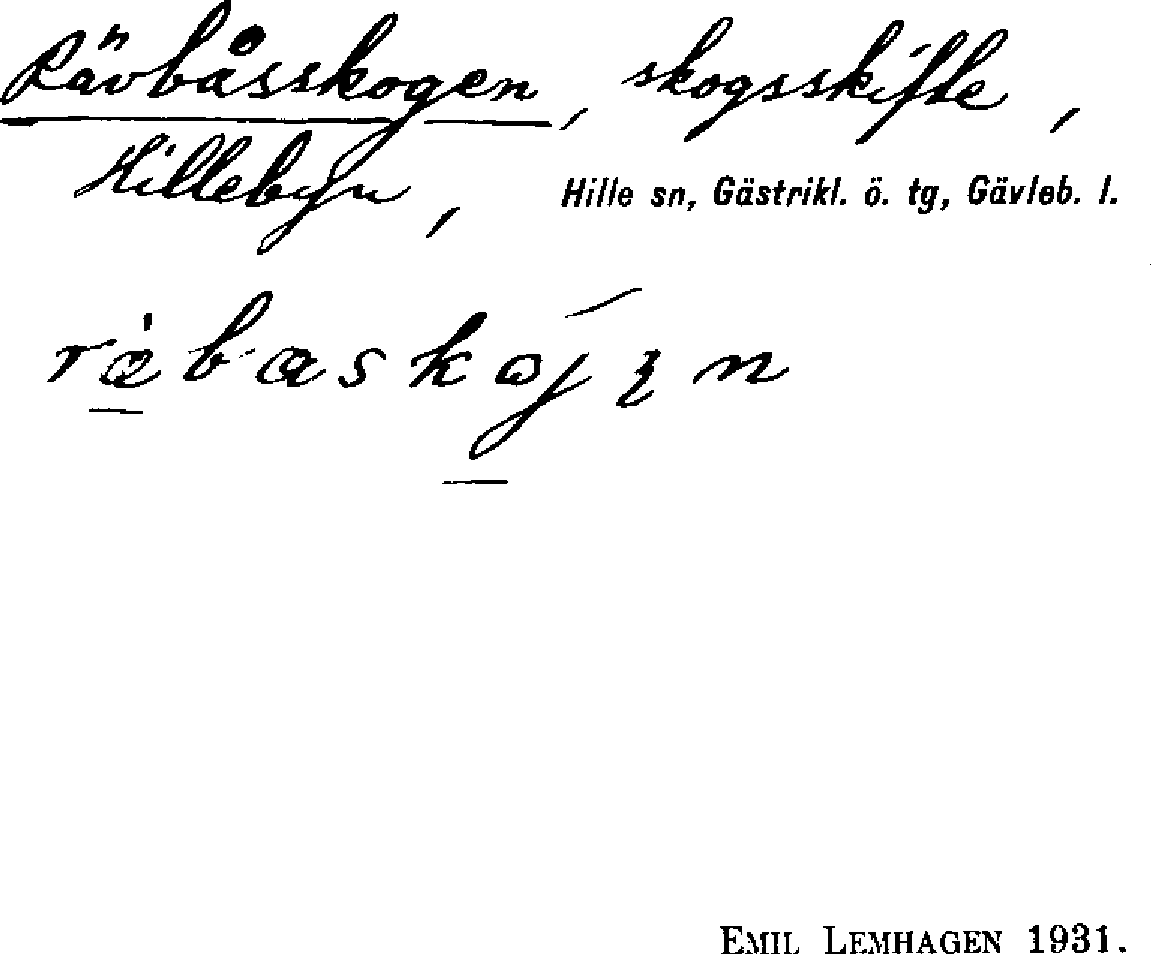 Rävbåsskogen, skogsskifte,
Hillebyn, Hille sn, Gästrikl. ö. tg, Gävleb. l.
EMIL LEMHAGEN 1931.